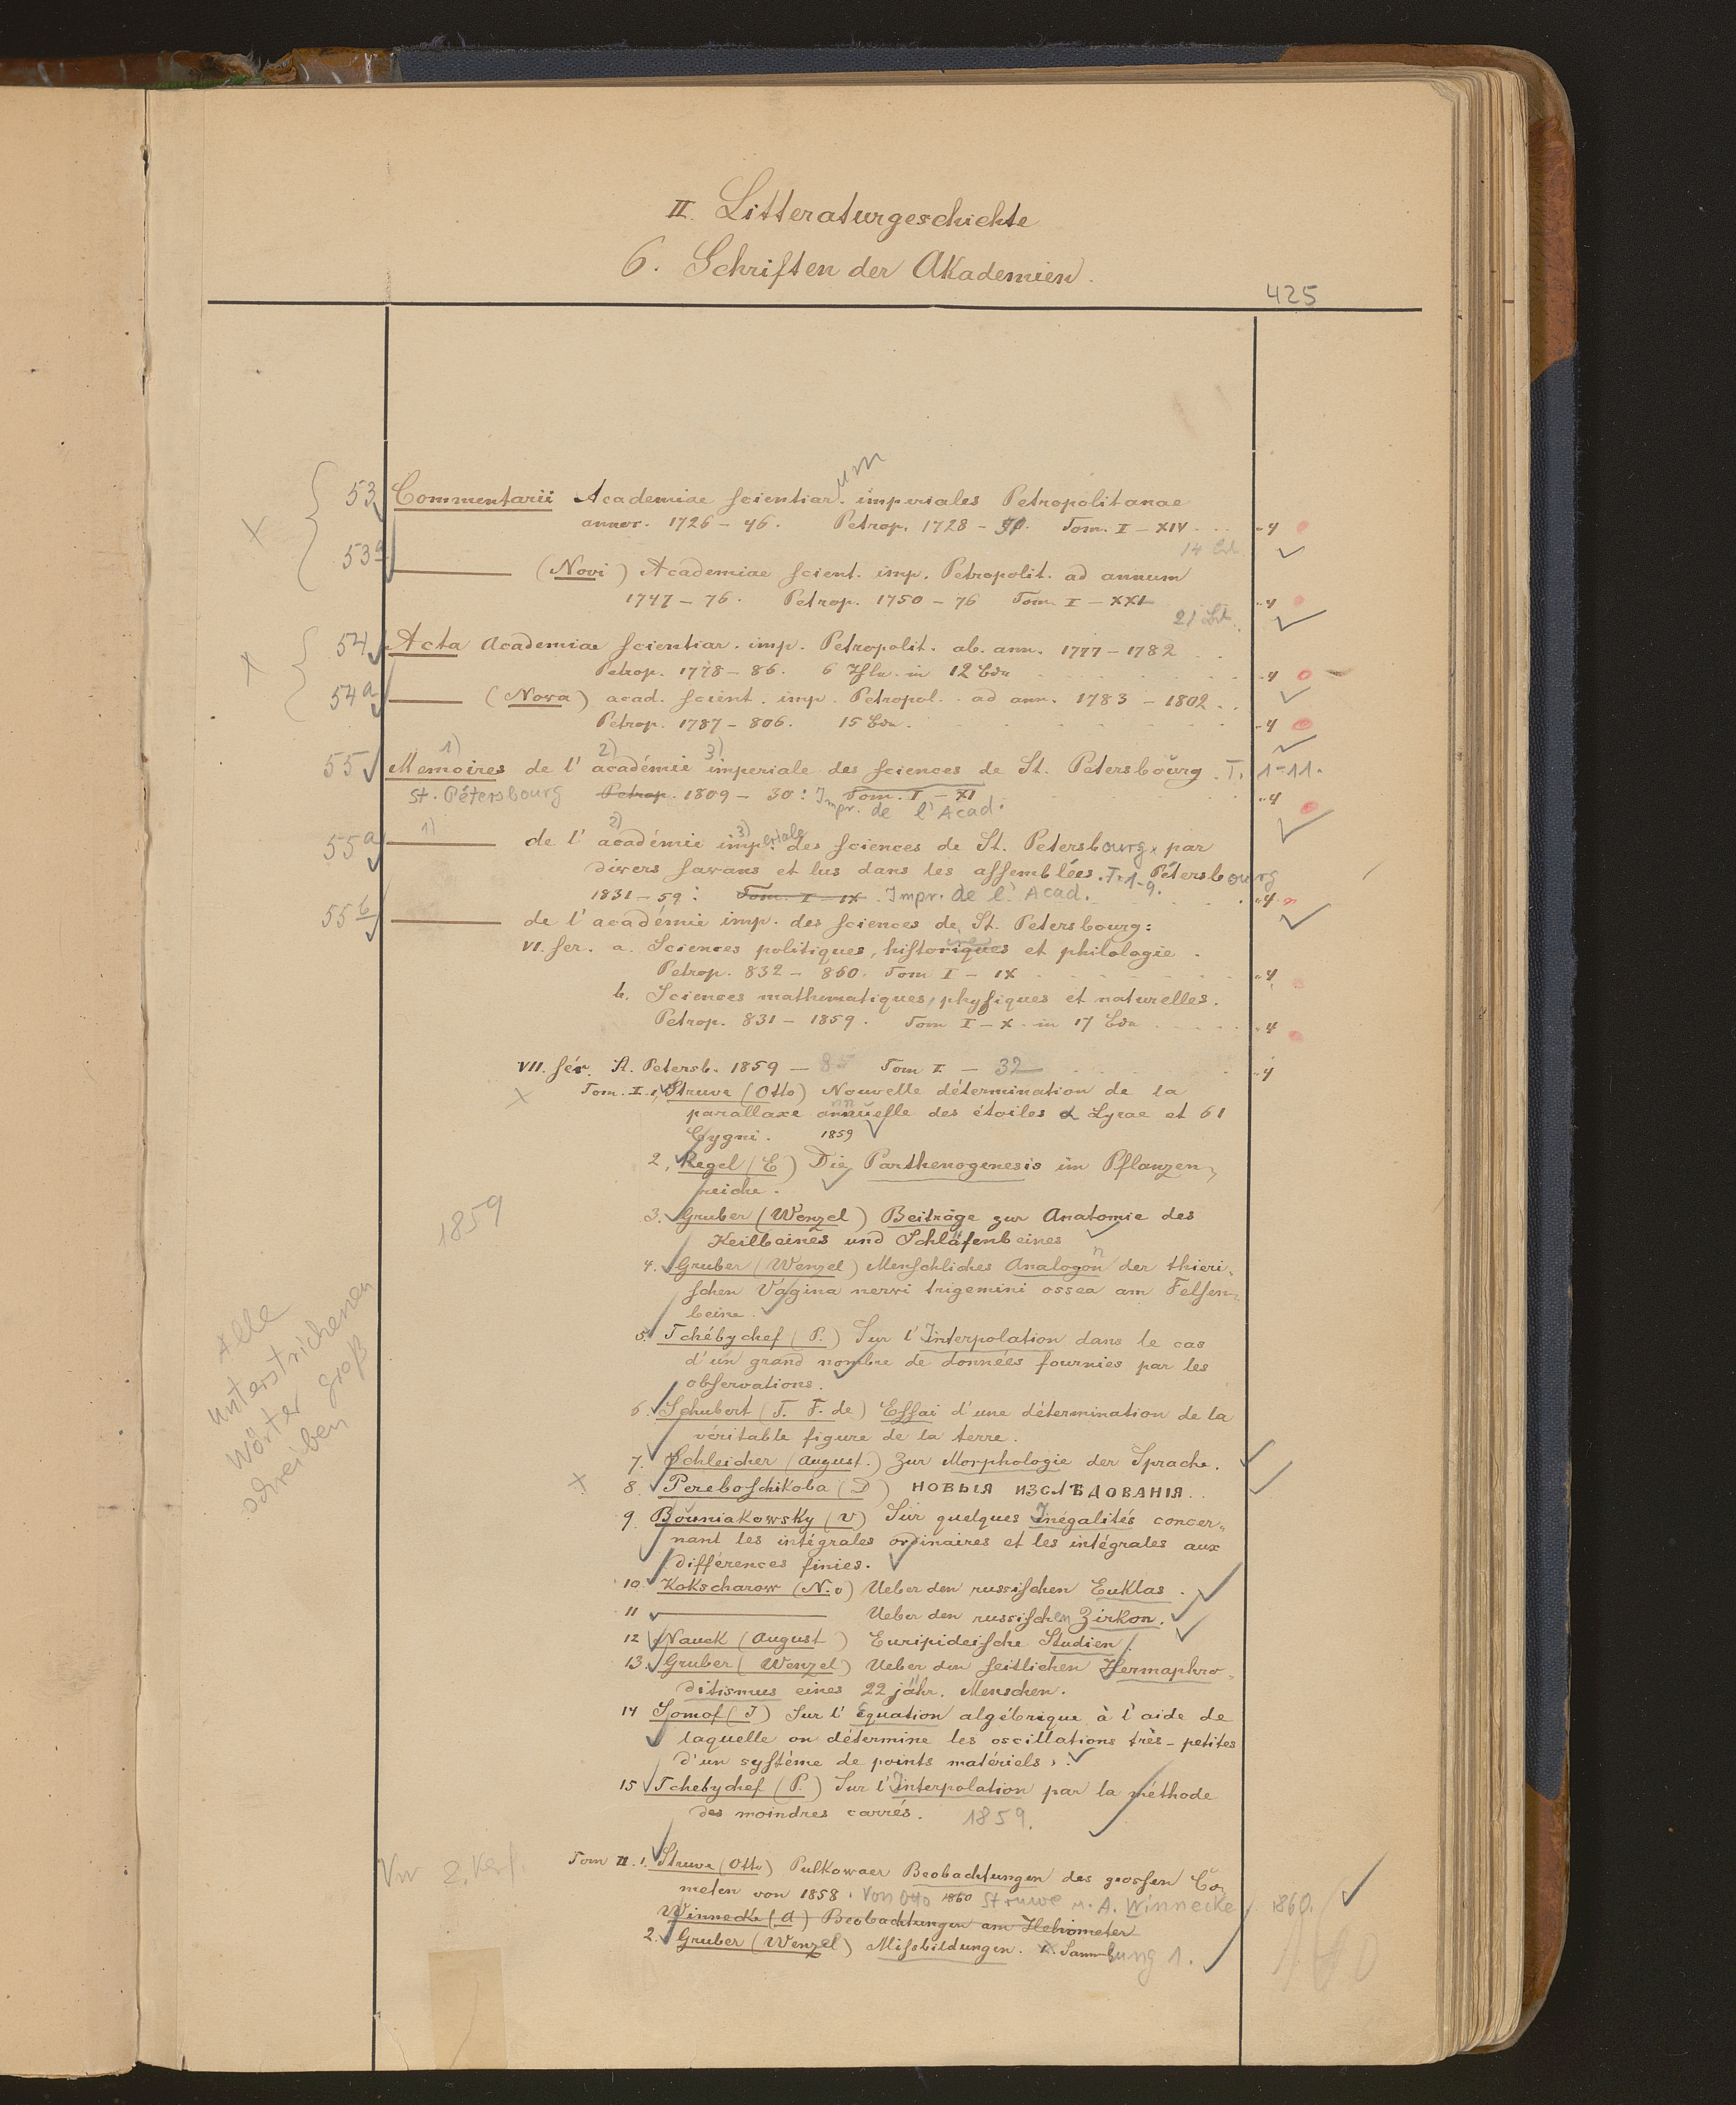 II. Litteraturgeschichte
6. Schriften der Akademien.
425
53 Commentarii Academiae scientiar.um imperiales Petropolitanae
annor. 1726 - 46. Petrop. 1728 - Tom. I - XIV. -4
14 Bd.
53a (Novi) Academiae scient. imp. Petropolit. ad annum
1747 - 76. Petrop. 1750 - 76 Tom. I - XXI -4
21 Bd.
54 Acta academiae scientiar. imp. Petropolit. ab. ann. 1777 - 1782
Petrop. 1778 - 86. 6 Thle. in 12 Bdn -4
54a (Nova) acad. scient. imp. Petropol. ad ann. 1783 - 1802..
Petrop. 1787 - 806. 15 Bdn. -4
1) 2) 3)
55 Memoires de l' académie imperiale des sciences de St. Petersbourg. T. 1-11.
St. Pétersbourg Petrop. 1809 - 30: Tom. I - XI -4
Impr. de l' Acad.
1) 2) 3)
55a de l' académie imperiale des sciences de St. Petersbourg, par
divers savans et lus dans les assemblées. T. 1-9. Pétersbourg
1831 - 59: Tom. I - IX. Impr. de l' Acad. -4
55b de l' académie imp. des sciences de St. Petersbourg:
VI. ser. a. Sciences politiques, historiques et philologie.
Petrop. 832 - 860. Tom I - IX -4
b. Sciences mathematiques, physiques et naturelles.
Petrop. 831 - 1859. Tom I - X. in 17 Bdn -4
VII. sér. St. Petersb. 1859 - 85 Tom I - 32 -4
Tom. I. 1, Struve (Otto) Nouvelle détermination de la
parallaxe annuelle des étoiles α Lyrae et 61
Cygni. 1859
2, Regel (E) Die Parthenogenesis im Pflanzen-
reiche.
1859
3. Gruber (Wenzel) Beiträge zur Anatomie des
Keilbeines und Schläfenbeines
4. Gruber (Wenzel) Menschliches Analogon der thieri-
schen Vagina nervi trigemini ossea am Felsen-
beine.
Alle
unterstrichenen
Wörter groß
schreiben
5. Tchébychef (P.) Sur l' Interpolation dans le cas
d'un grand nombre de données fournies par les
observations.
6. Schubert (T. F. de) Essai d'une détermination de la
véritable figure de la terre.
7. Schleicher (August.) Zur Morphologie der Sprache.
8. Pereboschikoba (D) НОВЫЯ ИЗСЛѢДОВАНІЯ.
9 Bouniakowsky (V) Sur quelques Inégalités concer-
nant les intégrales ordinaires et les intégrales aux
différences finies.
10. Kokscharow (N. v) Ueber den russischen Euklas.
11 Ueber den russischen Zirkon.
12 Nauck (August) Euripideische Studien.
13. Gruber (Wenzel) Ueber den seitlichen Hermaphro-
ditismus eines 22 jähr. Menschen.
14 Somof (J) Sur l' équation algébrique à l'aide de
laquelle on détermine les oscillations très-petites
d'un système de points matériels.
15 Tchebychef (P.) Sur l' Interpolation par la méthode
des moindres carrés. 1859.
Tom II. 1. Struve (Otto) Pulkowaer Beobachtungen des grossen Co-
meten von 1858. Von Otto 1860 Struwe u. A. Winnecke. 1860.
Winnecke (A) Beobachtungen am Heliometer
2. Gruber (Wenzel) Missbildungen. Sammlung 1.